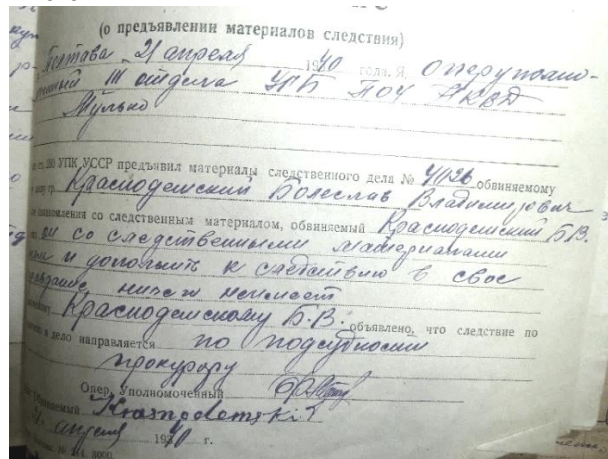 (о предъявлении материалов следствия)
Полтава 21 апреля 1940 года. Я, оперуполно-
моченный III отдела УГБ ПОУ НКВД
Мулько
ст. 200 УПК УССР предъявил материалы следственного дела № обвиняемому
гр. Краснодемский Болеслав Владимирович
ознакомления со следственным материалом, обвиняемый Краснодемский Б.В.
со следственными материалами
и дополнить к следствию в свое
ничего не имеет
Краснодемскому Б.В. объявлено, что следствие по
дело направляется по подсудности
прокурору
Опер. Уполномоченный
Обвиняемый Krasnodemski B
апреля 1940 г.